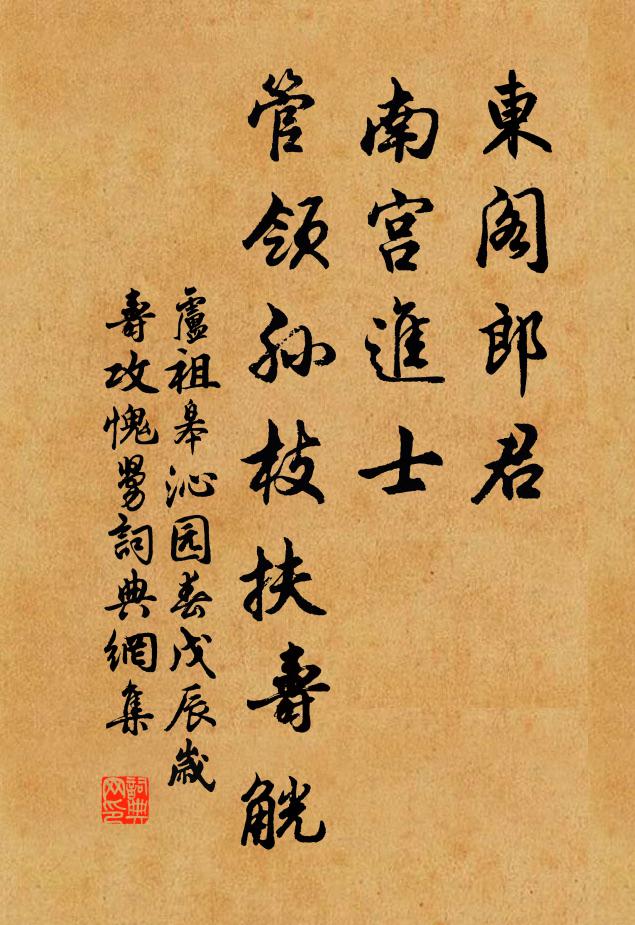 東阁郎君
南宫進士
管领孙枝扶壽觥
盧祖皋沁园春戊辰歲
壽攻愧舅詞典網集
詞典网印